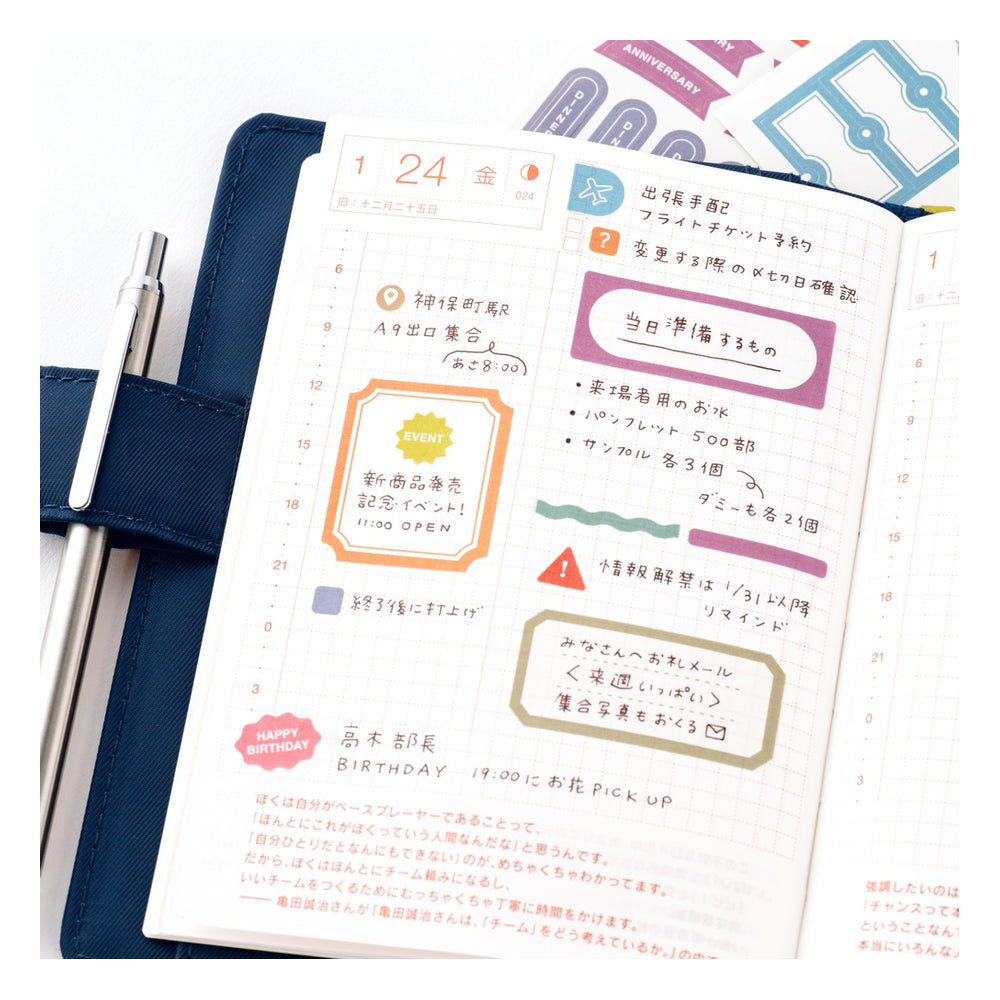 ANNIVERSARY
DINNE
DIN
1 24 金
024
旧：十二月二十五日
6
9
12
15
18
21
0
3
神保町駅
A9出口集合
あさ8:00
EVENT
新商品発売
記念イベント!
11:00 OPEN
終了後に打上げ
HAPPY
BIRTHDAY
高木部長
BIRTHDAY 19:00にお花PICK UP
出張手配
フライトチケット予約
?
変更する際の〆切日確認
当日準備するもの
・来場者用のお水
・パンフレット 500部
・サンプル 各3個
ダミーも各2個
!
情報解禁は1/31以降
リマインド
みなさんへお礼メール
<来週いっぱい>
集合写真もおくる
ぼくは自分がベースプレーヤーであることって、
「ほんとにこれがぼくっていう人間なんだな」と思うんです。
「自分ひとりだとなんにもできない」のが、めちゃくちゃわかってます。
だから、ぼくはほんとにチーム頼みになるし、
いいチームをつくるためにむっちゃくちゃ丁寧に時間をかけます。
—— 亀田誠治さんが『亀田誠治さんは、「チーム」をどう考えているか。』の中で
1
旧：十二
6
9
12
15
18
21
0
3
強調したいのは
「チャンスって本
ということなんで
本当にいろんな人